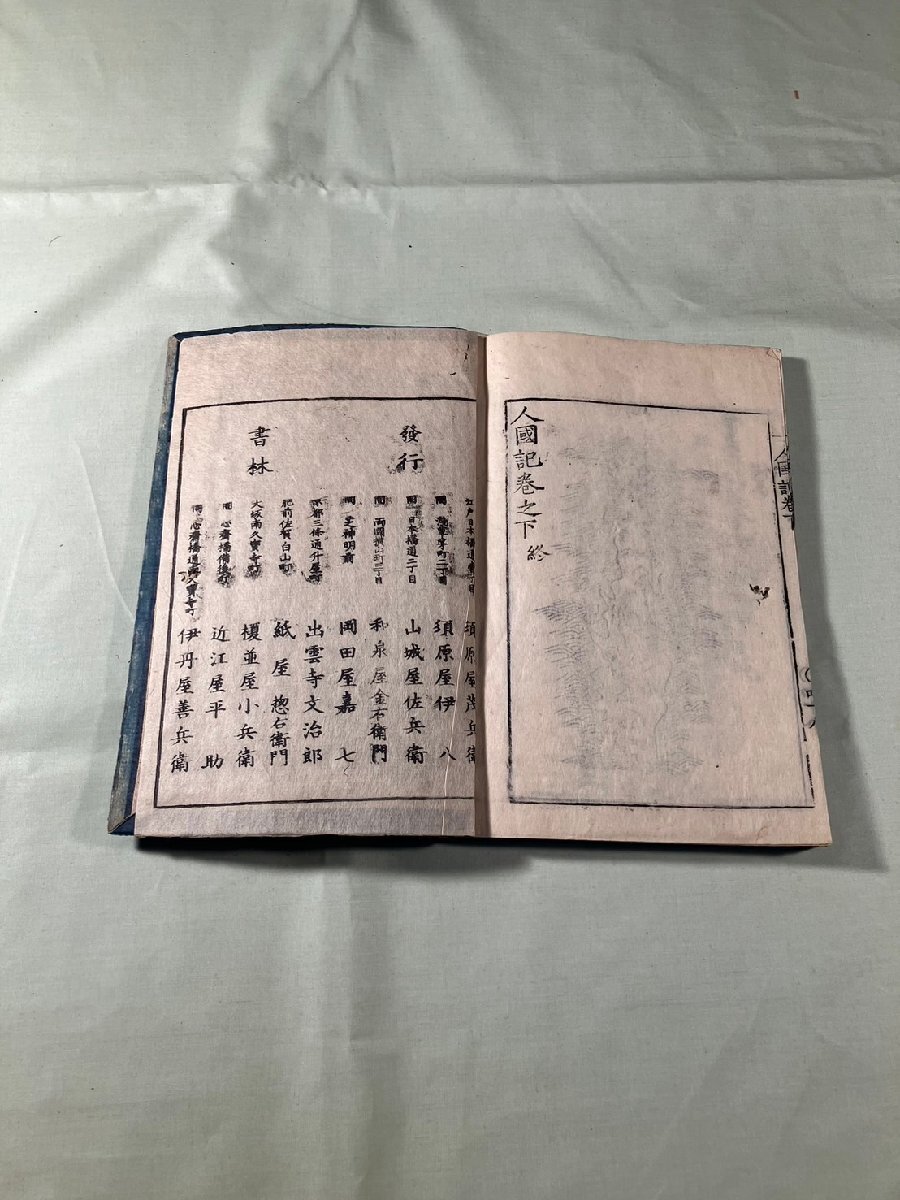 人國記卷下
人國記卷之下 終
發行
書林
江戸日本橋通壹丁目 須原屋茂兵衛
同 須原屋伊八
同 日本橋通二丁目 山城屋佐兵衛
同 両國横山町三丁目 和泉屋金右衛門
同 芝神明前 岡田屋嘉七
京都三條通升屋町 出雲寺文治郎
肥前佐賀白山町 紙屋惣右衛門
大坂南久寳寺町 榎並屋小兵衛
同 心齋橋備後町 近江屋平助
同 心齋橋通南久寳寺町 伊丹屋善兵衛